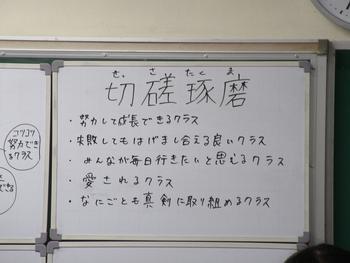 せっさたくま
切磋琢磨
・努力して成長できるクラス
・失敗してもはげまし合える良いクラス
・みんなが毎日行きたいと思えるクラス
・愛されるクラス
・なにごとも真剣に取り組めるクラス
コツコツ
努力でき
るクラス